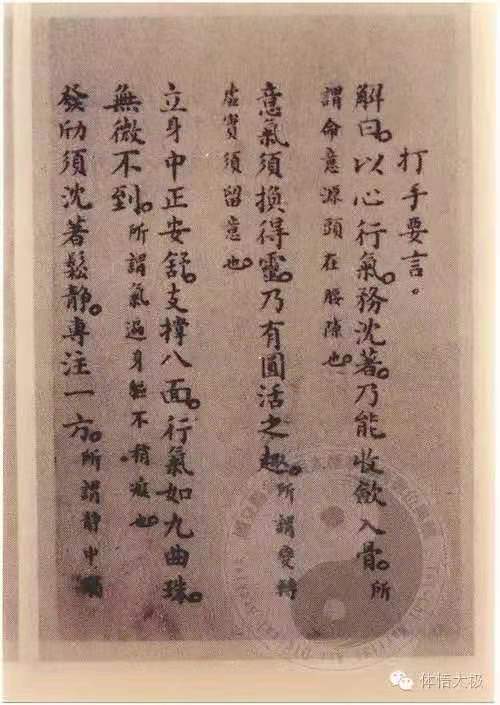 打手要言。
解曰。以心行氣。務沈著。乃能收斂入骨。所
謂命意源頭在腰隙也。
意氣須換得靈。乃有圓活之趣。所謂變轉
虛實須留意也。
立身中正安舒。支撐八面。行氣如九曲珠。
無微不到。所謂氣遍身軀不稍癡也。
發劤須沈著鬆靜。專注一方。所謂静中觸
体悟太极